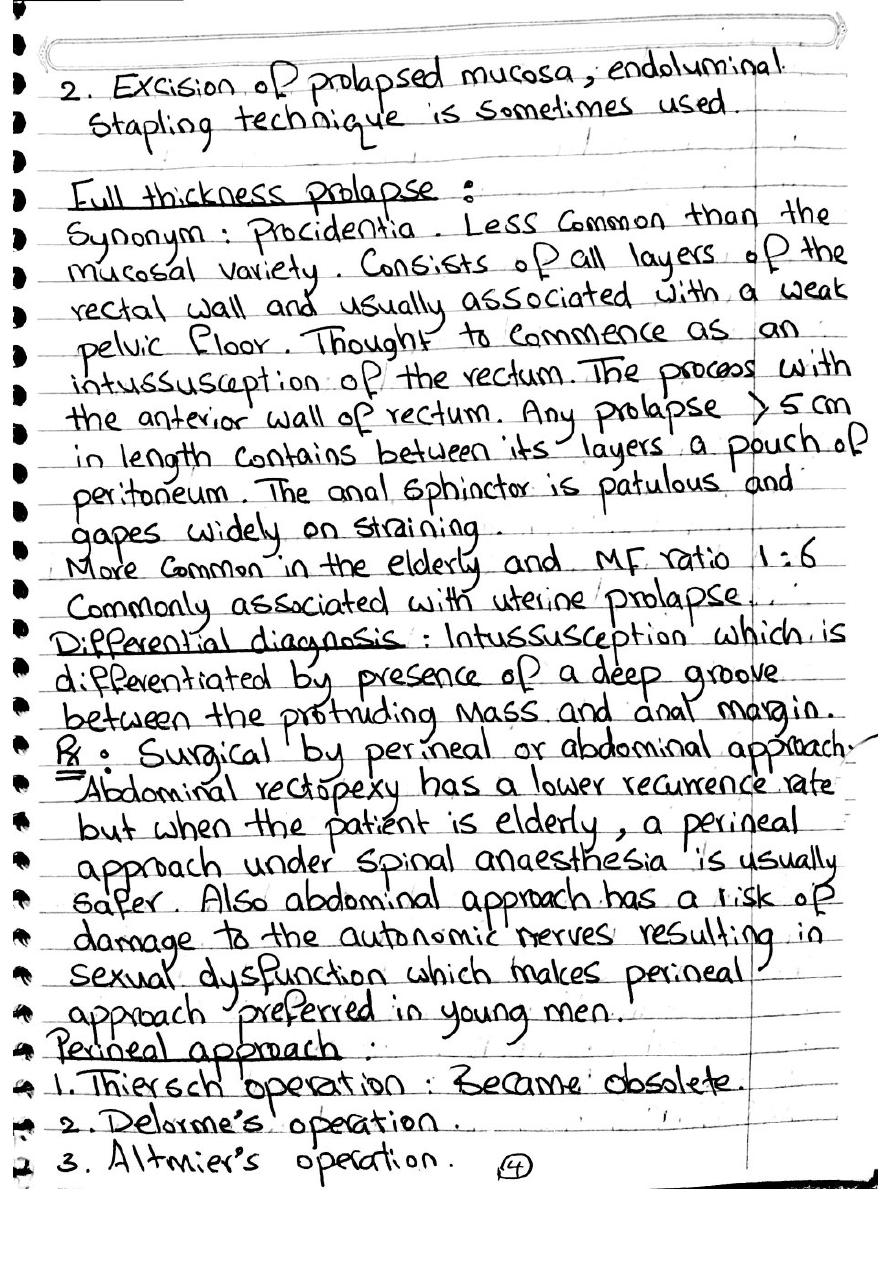 2. Excision of prolapsed mucosa, endoluminal
stapling technique is sometimes used.
Full thickness prolapse :
Synonym : Procidentia. Less Common than the
mucosal variety. Consists of all layers of the
rectal wall and usually associated with a weak
pelvic floor. Thought to Commence as an
intussusception of the rectum. The process with
the anterior wall of rectum. Any prolapse > 5 cm
in length Contains between its layers a pouch of
peritoneum. The anal Sphinctor is patulous and
gapes widely on straining.
More Common in the elderly and MF ratio 1:6
Commonly associated with uterine prolapse.
Differential diagnosis : Intussusception which is
differentiated by presence of a deep groove
between the protruding Mass and anal margin.
Rx : Surgical by perineal or abdominal approach.
Abdominal rectopexy has a lower recurrence rate
but when the patient is elderly, a perineal
approach under Spinal anaesthesia is usually
safer. Also abdominal approach has a risk of
damage to the autonomic nerves resulting in
sexual dysfunction which makes perineal
approach preferred in young men.
Perineal approach :
1. Thiersch operation : Became obsolete.
2. Delorme's operation.
3. Altmier's operation.
4